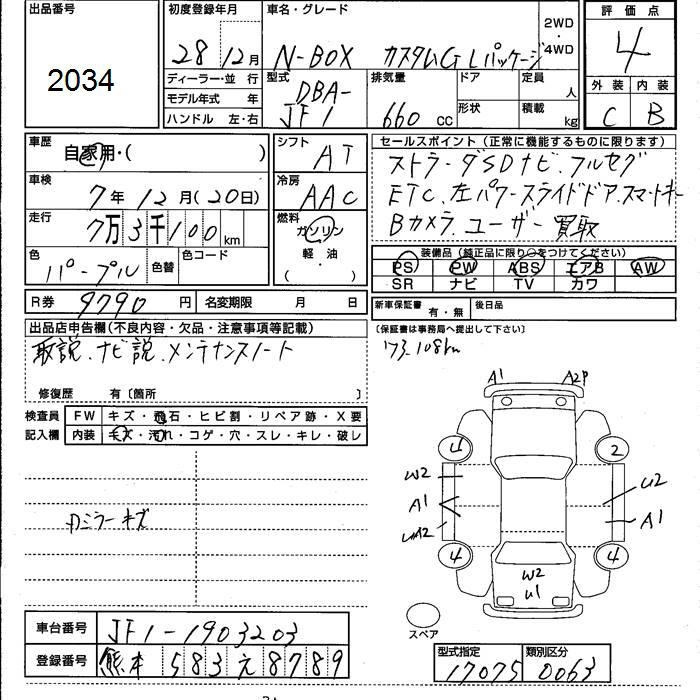 出品番号
2034
初度登録年月
28年12月
車名・グレード
N-BOX カスタムG Lパッケージ
2WD
・
4WD
評価点
4
外装 内装
C B
ディーラー・並行
モデル年式 年
ハンドル 左・右
型式
DBA-
JF1
排気量
660 cc
ドア
形状
定員
人
積載
kg
車歴
自家用・( )
車検
7年12月(20日)
走行
7万3千100km
色
パープル
色替
色コード
シフト
AT
冷房
AAC
燃料
ガソリン
軽・油
( )
セールスポイント(正常に機能するものに限ります)
ストラーダSDナビ.フルセグ
ETC.左パワースライドドア.スマートキー
Bカメラ.ユーザー買取
装備品(純正品に限り○をつけてください)
PS PW ABS エアB AW
SR ナビ TV カワ
R券 9790円
名変期限 月 日
新車保証書 有・無
後日品
(保証書は事務局へ提出して下さい)
73.108km
出品店申告欄(不良内容・欠品・注意事項等記載)
取説.ナビ説.メンテナンスノート
修復歴 有〔箇所 〕
検査員
記入欄
FW キズ・飛石・ヒビ割・リペア跡・X要
内装 キズ・汚れ・コゲ・穴・スレ・キレ・破レ
Rミラーキズ
A1 A2P
4 2
W2 U2
A1 A1
UA2
4 4
W2
U1
スペア
車台番号 JF1-1903203
登録番号 熊本 583 え 8789
型式指定 類別区分
17075 0063